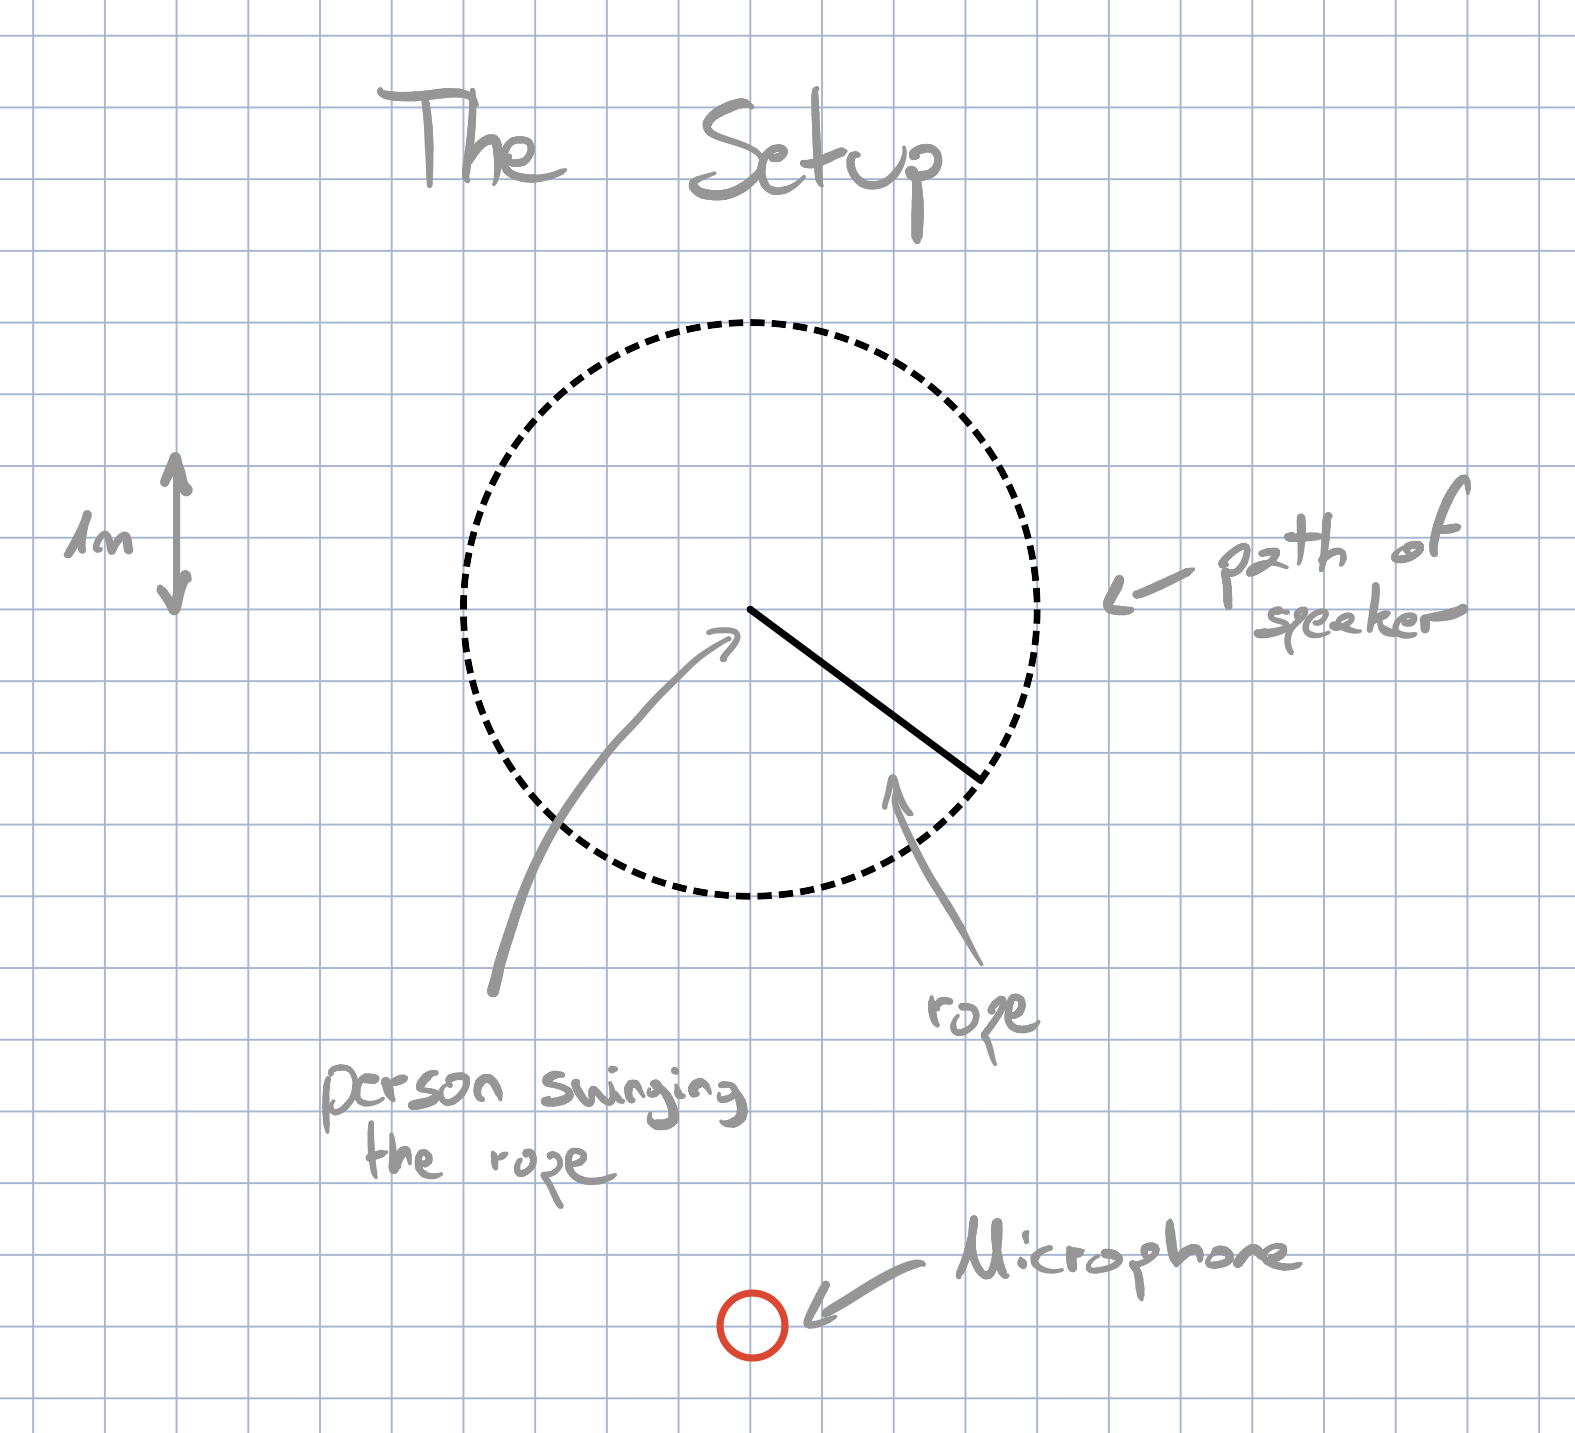 The Setup
1m
path of
speaker
rope
person swinging
the rope
Microphone